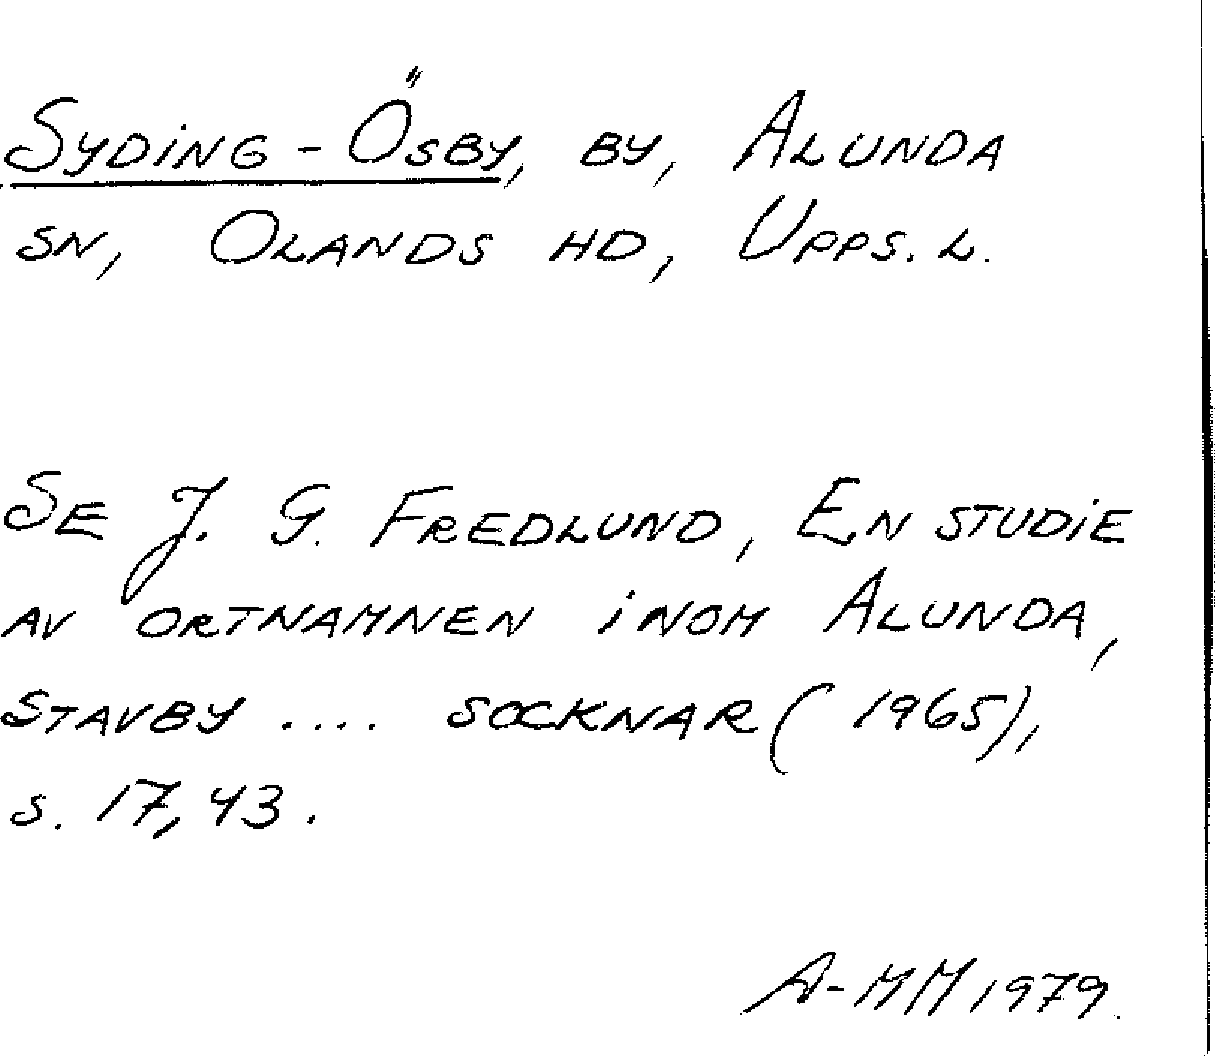 Syding-Ösby, by, Alunda
sn, Olands hd, Upps. l.
Se J. G. Fredlund, En studie
av ortnamnen inom Alunda,
Stavby .... socknar (1965),
s. 17, 43.
A-MM 1979.